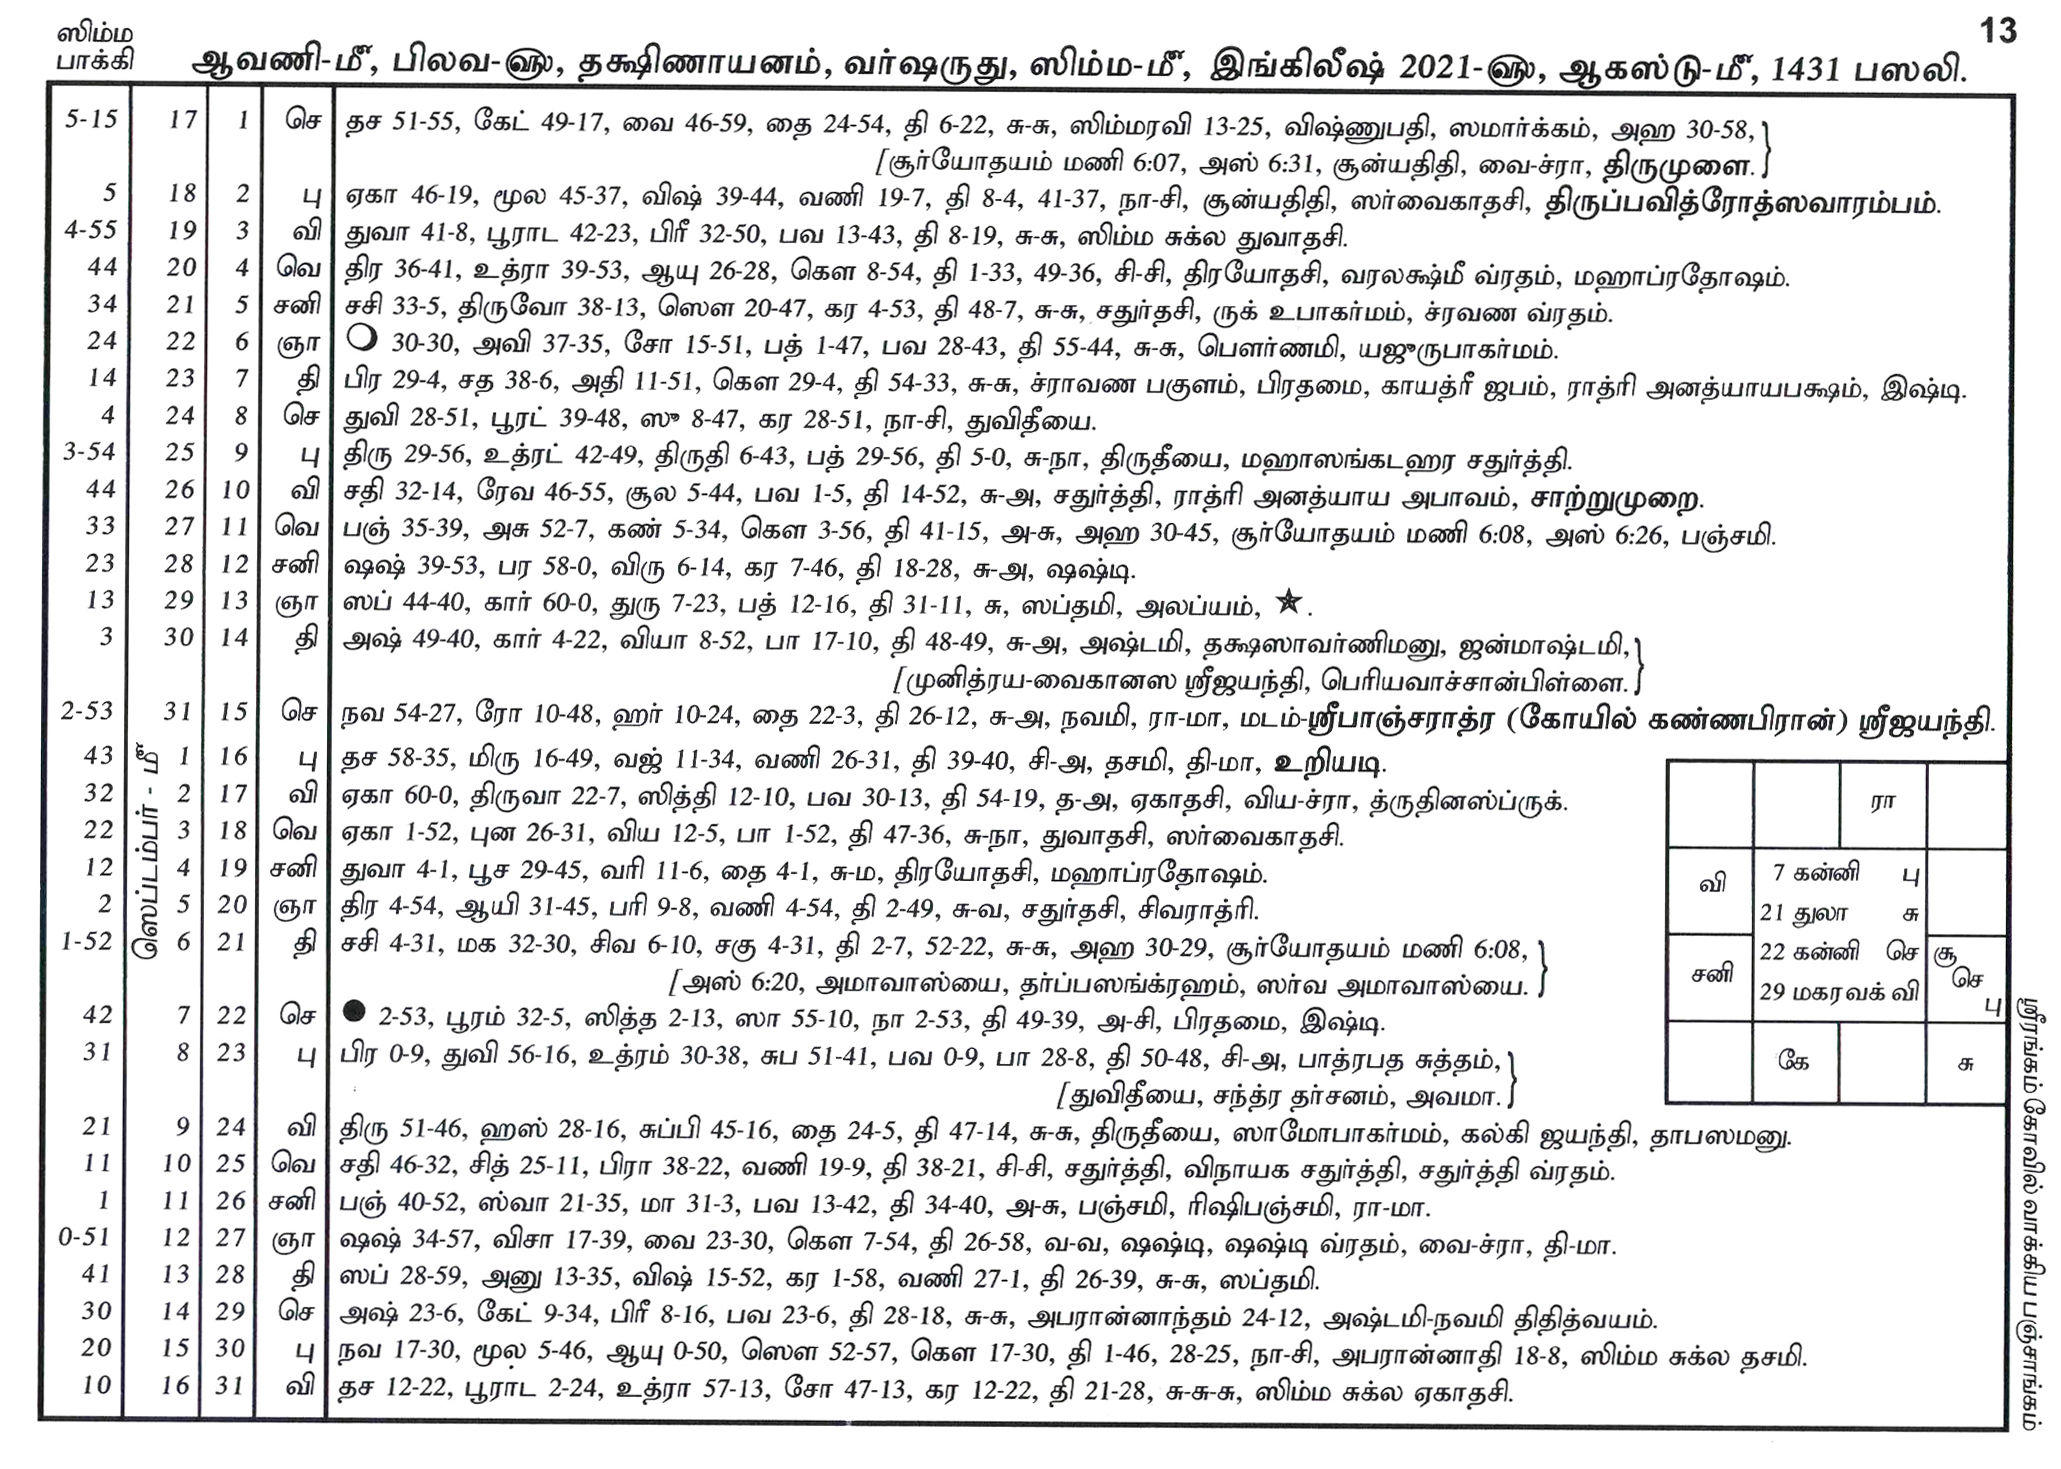 13
ஸிம்ம
பாக்கி
ஆவணி-மீ, பிலவ-௵, தக்ஷிணாயனம், வர்ஷருது, ஸிம்ம-மீ, இங்கிலீஷ் 2021-௵, ஆகஸ்டு-மீ, 1431 பஸலி.
5-15 17 1 செ தச 51-55, கேட் 49-17, வை 46-59, தை 24-54, தி 6-22, சு-சு, ஸிம்மரவி 13-25, விஷ்ணுபதி, ஸமார்க்கம், அஹ 30-58,}
[சூர்யோதயம் மணி 6:07, அஸ் 6:31, சூன்யதிதி, வை-ச்ரா, திருமுளை.
5 18 2 பு ஏகா 46-19, மூல 45-37, விஷ் 39-44, வணி 19-7, தி 8-4, 41-37, நா-சி, சூன்யதிதி, ஸர்வைகாதசி, திருப்பவித்ரோத்ஸவாரம்பம்.
4-55 19 3 வி துவா 41-8, பூராட 42-23, பிரீ 32-50, பவ 13-43, தி 8-19, சு-சு, ஸிம்ம சுக்ல துவாதசி.
44 20 4 வெ திர 36-41, உத்ரா 39-53, ஆயு 26-28, கௌ 8-54, தி 1-33, 49-36, சி-சி, திரயோதசி, வரலக்ஷ்மீ வ்ரதம், மஹாப்ரதோஷம்.
34 21 5 சனி சசி 33-5, திருவோ 38-13, ஸௌ 20-47, கர 4-53, தி 48-7, சு-சு, சதுர்தசி, ருக் உபாகர்மம், ச்ரவண வ்ரதம்.
24 22 6 ஞா 30-30, அவி 37-35, சோ 15-51, பத் 1-47, பவ 28-43, தி 55-44, சு-சு, பௌர்ணமி, யஜுருபாகர்மம்.
14 23 7 தி பிர 29-4, சத 38-6, அதி 11-51, கௌ 29-4, தி 54-33, சு-சு, ச்ராவண பகுளம், பிரதமை, காயத்ரீ ஜபம், ராத்ரி அனத்யாயபக்ஷம், இஷ்டி.
4 24 8 செ துவி 28-51, பூரட் 39-48, ஸு 8-47, கர 28-51, நா-சி, துவிதீயை.
3-54 25 9 பு திரு 29-56, உத்ரட் 42-49, திருதி 6-43, பத் 29-56, தி 5-0, சு-நா, திருதீயை, மஹாஸங்கடஹர சதுர்த்தி.
44 26 10 வி சதி 32-14, ரேவ 46-55, சூல 5-44, பவ 1-5, தி 14-52, சு-அ, சதுர்த்தி, ராத்ரி அனத்யாய அபாவம், சாற்றுமுறை.
33 27 11 வெ பஞ் 35-39, அசு 52-7, கண் 5-34, கௌ 3-56, தி 41-15, அ-சு, அஹ 30-45, சூர்யோதயம் மணி 6:08, அஸ் 6:26, பஞ்சமி.
23 28 12 சனி ஷஷ் 39-53, பர 58-0, விரு 6-14, கர 7-46, தி 18-28, சு-அ, ஷஷ்டி.
13 29 13 ஞா ஸப் 44-40, கார் 60-0, துரு 7-23, பத் 12-16, தி 31-11, சு, ஸப்தமி, அலப்யம், ★.
3 30 14 தி அஷ் 49-40, கார் 4-22, வியா 8-52, பா 17-10, தி 48-49, சு-அ, அஷ்டமி, தக்ஷஸாவர்ணிமனு, ஜன்மாஷ்டமி,}
[முனித்ரய-வைகானஸ ஸ்ரீஜயந்தி, பெரியவாச்சான்பிள்ளை.
2-53 31 15 செ நவ 54-27, ரோ 10-48, ஹர் 10-24, தை 22-3, தி 26-12, சு-அ, நவமி, ரா-மா, மடம்-ஸ்ரீபாஞ்சராத்ர (கோயில் கண்ணபிரான்) ஸ்ரீஜயந்தி.
ஸெப்டம்பர் - மீ
43 1 16 பு தச 58-35, மிரு 16-49, வஜ் 11-34, வணி 26-31, தி 39-40, சி-அ, தசமி, தி-மா, உறியடி.
32 2 17 வி ஏகா 60-0, திருவா 22-7, ஸித்தி 12-10, பவ 30-13, தி 54-19, த-அ, ஏகாதசி, விய-ச்ரா, த்ருதினஸ்ப்ருக்.
22 3 18 வெ ஏகா 1-52, புன 26-31, விய 12-5, பா 1-52, தி 47-36, சு-நா, துவாதசி, ஸர்வைகாதசி.
12 4 19 சனி துவா 4-1, பூச 29-45, வரி 11-6, தை 4-1, சு-ம, திரயோதசி, மஹாப்ரதோஷம்.
2 5 20 ஞா திர 4-54, ஆயி 31-45, பரி 9-8, வணி 4-54, தி 2-49, சு-வ, சதுர்தசி, சிவராத்ரி.
1-52 6 21 தி சசி 4-31, மக 32-30, சிவ 6-10, சகு 4-31, தி 2-7, 52-22, சு-சு, அஹ 30-29, சூர்யோதயம் மணி 6:08,}
[அஸ் 6:20, அமாவாஸ்யை, தர்ப்பஸங்க்ரஹம், ஸர்வ அமாவாஸ்யை.
42 7 22 செ 2-53, பூரம் 32-5, ஸித்த 2-13, ஸா 55-10, நா 2-53, தி 49-39, அ-சி, பிரதமை, இஷ்டி.
31 8 23 பு பிர 0-9, துவி 56-16, உத்ரம் 30-38, சுப 51-41, பவ 0-9, பா 28-8, தி 50-48, சி-அ, பாத்ரபத சுத்தம்,}
[துவிதீயை, சந்த்ர தர்சனம், அவமா.
21 9 24 வி திரு 51-46, ஹஸ் 28-16, சுப்பி 45-16, தை 24-5, தி 47-14, சு-சு, திருதீயை, ஸாமோபாகர்மம், கல்கி ஜயந்தி, தாபஸமனு.
11 10 25 வெ சதி 46-32, சித் 25-11, பிரா 38-22, வணி 19-9, தி 38-21, சி-சி, சதுர்த்தி, விநாயக சதுர்த்தி, சதுர்த்தி வ்ரதம்.
1 11 26 சனி பஞ் 40-52, ஸ்வா 21-35, மா 31-3, பவ 13-42, தி 34-40, அ-சு, பஞ்சமி, ரிஷிபஞ்சமி, ரா-மா.
0-51 12 27 ஞா ஷஷ் 34-57, விசா 17-39, வை 23-30, கௌ 7-54, தி 26-58, வ-வ, ஷஷ்டி, ஷஷ்டி வ்ரதம், வை-ச்ரா, தி-மா.
41 13 28 தி ஸப் 28-59, அனு 13-35, விஷ் 15-52, கர 1-58, வணி 27-1, தி 26-39, சு-சு, ஸப்தமி.
30 14 29 செ அஷ் 23-6, கேட் 9-34, பிரீ 8-16, பவ 23-6, தி 28-18, சு-சு, அபரான்னாந்தம் 24-12, அஷ்டமி-நவமி திதித்வயம்.
20 15 30 பு நவ 17-30, மூல 5-46, ஆயு 0-50, ஸௌ 52-57, கௌ 17-30, தி 1-46, 28-25, நா-சி, அபரான்னாதி 18-8, ஸிம்ம சுக்ல தசமி.
10 16 31 வி தச 12-22, பூராட 2-24, உத்ரா 57-13, சோ 47-13, கர 12-22, தி 21-28, சு-சு-சு, ஸிம்ம சுக்ல ஏகாதசி.
ரா
வி
7 கன்னி பு
21 துலா சு
22 கன்னி செ
29 மகரவக் வி
சனி
சூ
செ
பு
கே
சு
ஸ்ரீரங்கம் கோவில் வாக்கிய பஞ்சாங்கம்